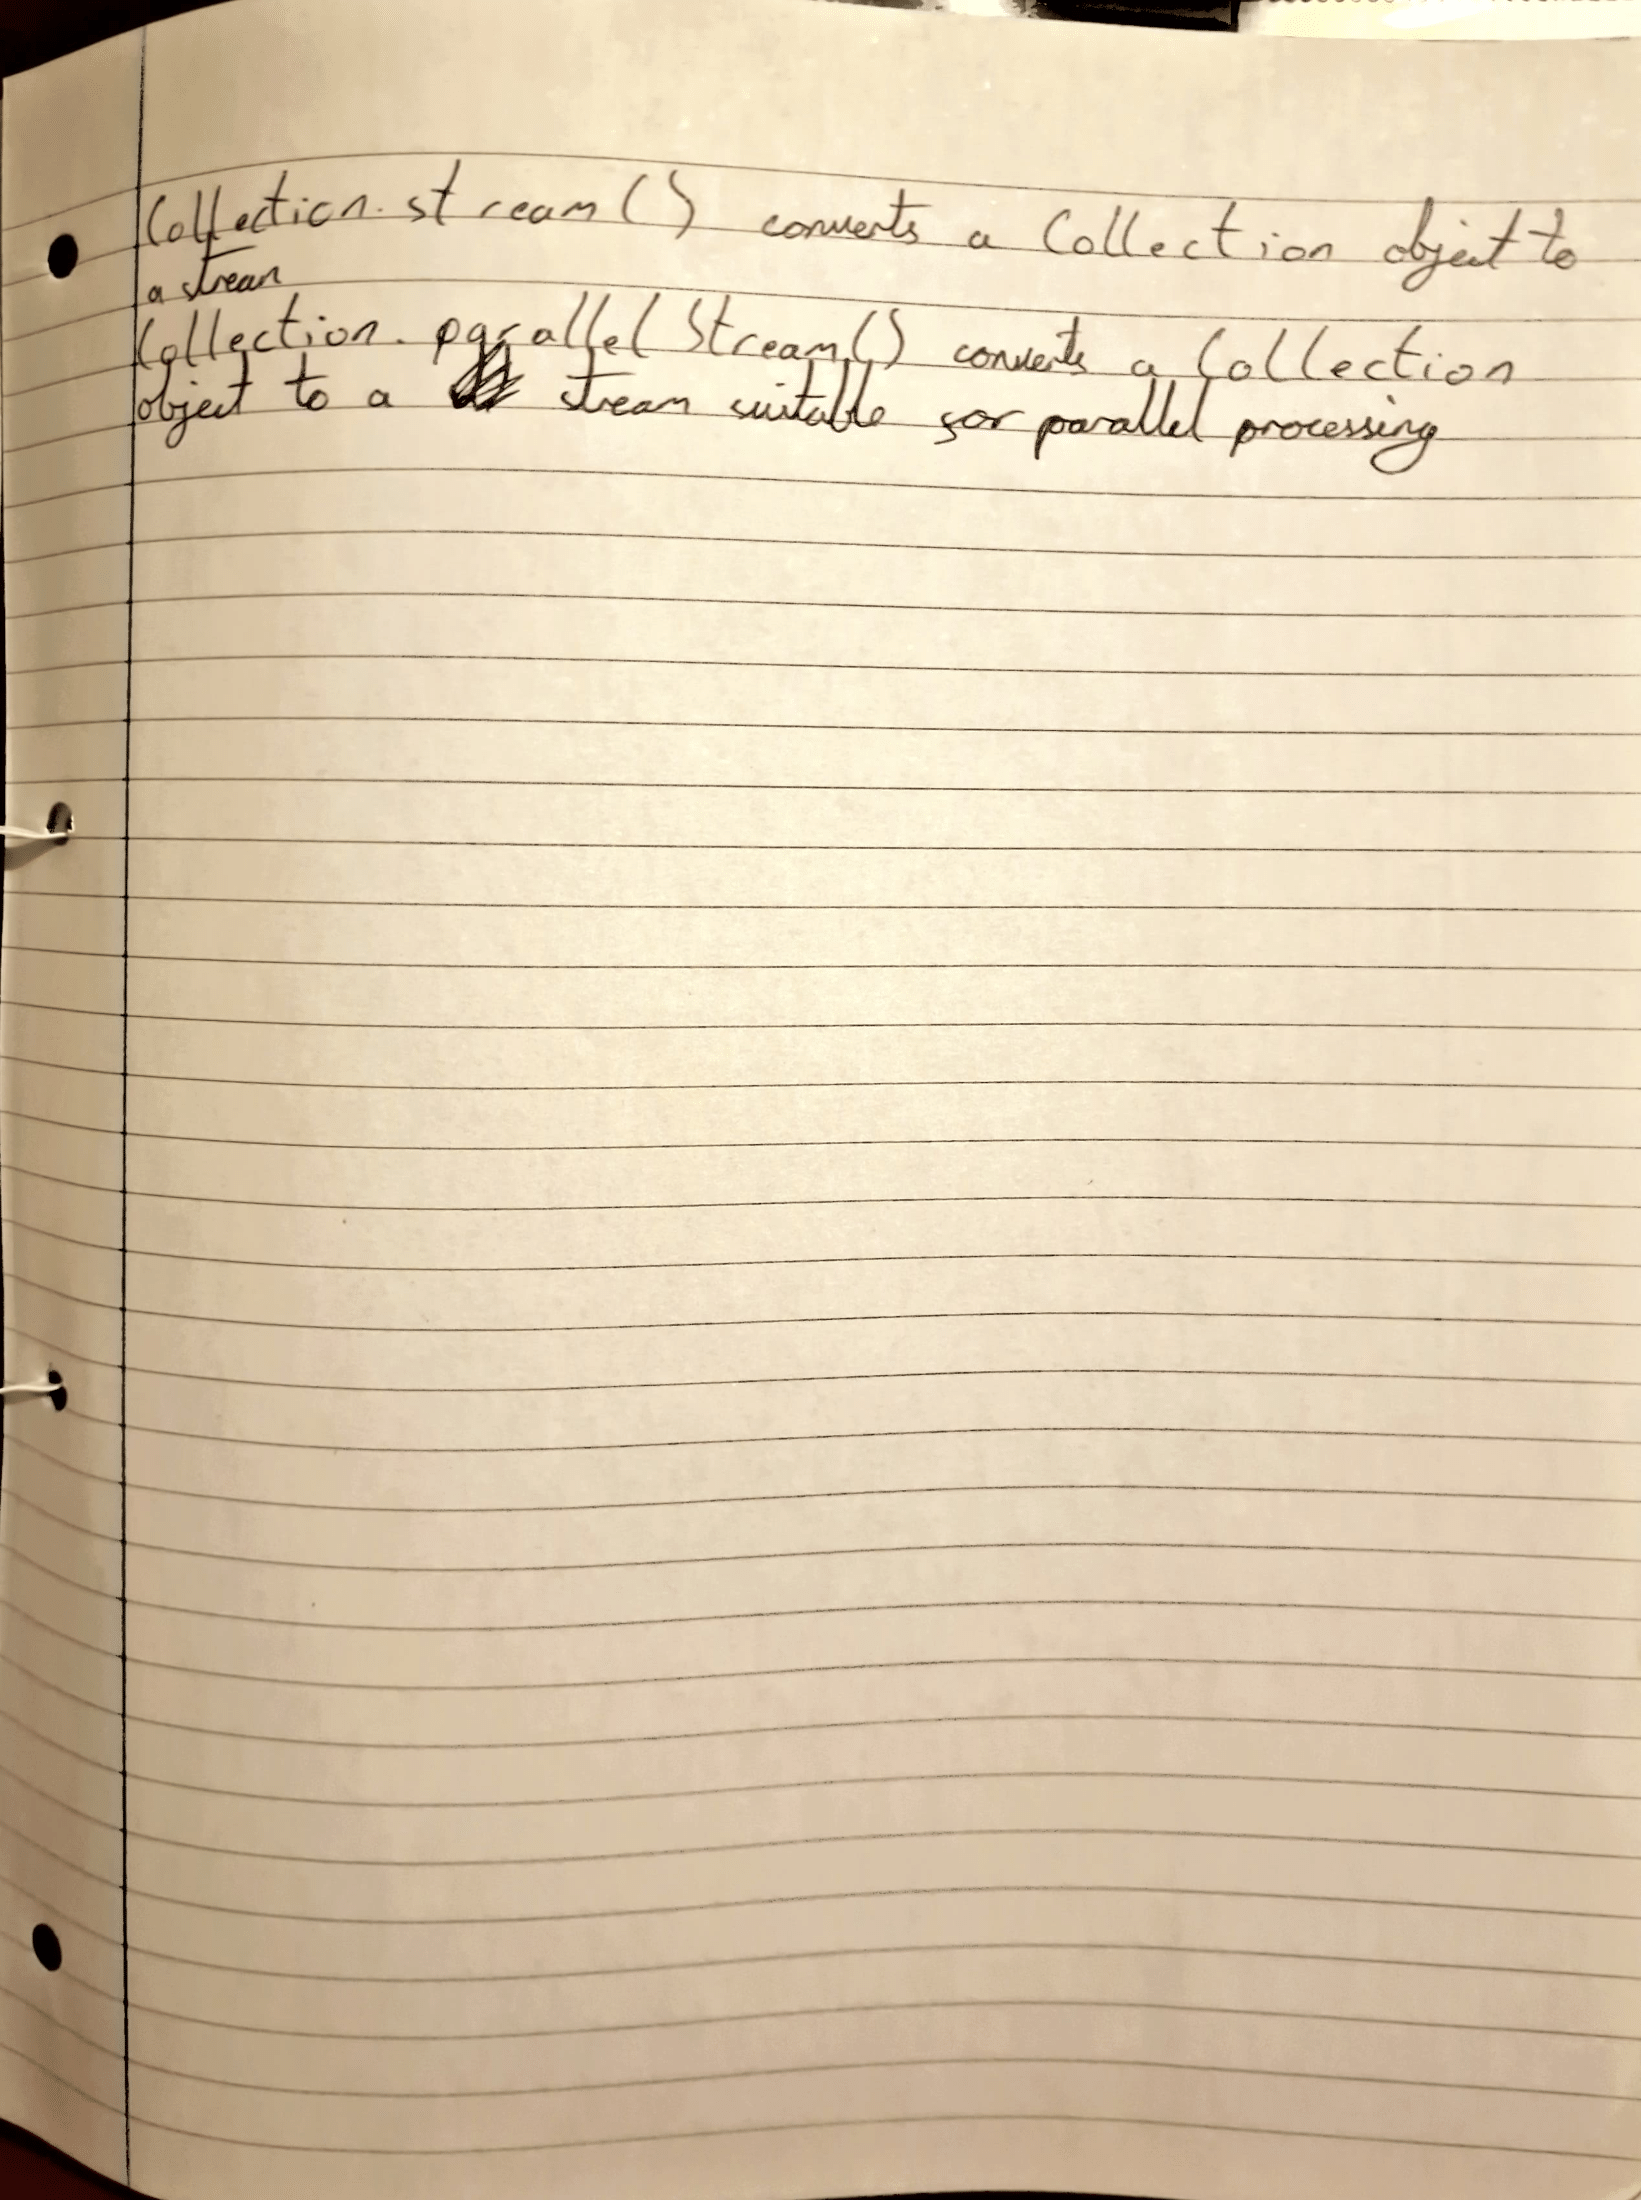 Collection.stream() converts a Collection object to
a stream
Collection.parallelStream() converts a Collection
object to a stream suitable for parallel processing